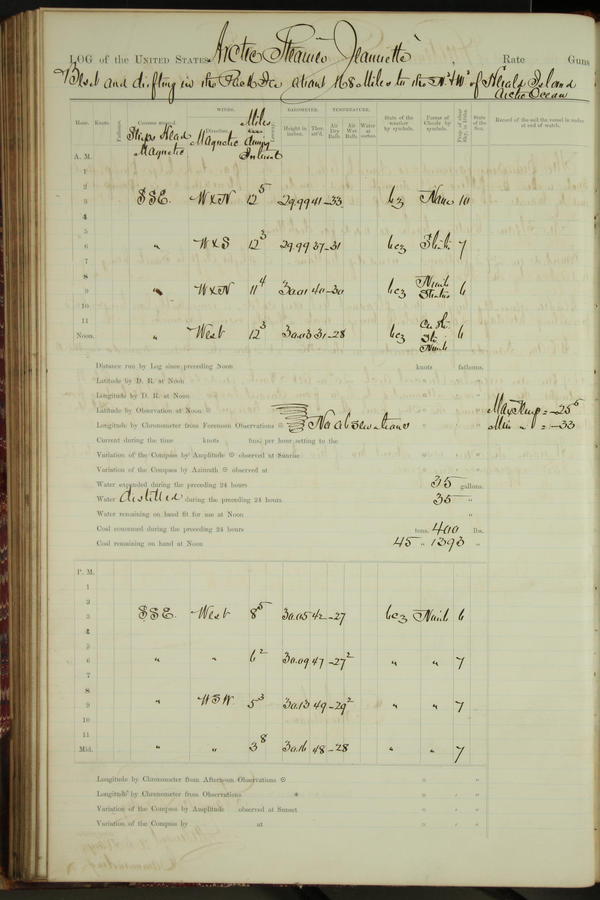 LOG of the UNITED STATES Arctic Steamer Jeannette , Rate Guns
Beset and drifting in the Pack Ice about 168 Miles to the N.&W'd of Herald Island
Arctic Ocean
WINDS. BAROMETER. TEMPERATURE.
Hour. Knots. Fathoms. Courses steered. Direction. Force. Leeway. Height in inches. Ther. att'd. Air Dry Bulb. Air Wet Bulb. Water at surface. State of the weather by symbols. Forms of Clouds by symbols. Prop. of clear Sky, in 10ths. State of the Sea. Record of the sail the vessel is under at end of watch.
Ships Head Magnetic Magnetic Miles during Interval
A. M.
1
2
3 SSE. W x N 12 5 29.99 41 -33 bcz None 10
4
5
6 " W x S 12 3 29.99 37 -31 bcz Strati 7
7
8
9 " W x N 11 4 30.01 40 -30 bcz Nimb Stratus 6
10
11
Noon. " West 12 3 30.03 31 -28 bcz Cu. Str. Str. Nimb 6
Distance run by Log since preceding Noon knots fathoms.
Latitude by D. R. at Noon
Longitude by D. R. at Noon
Latitude by Observation at Noon Max Temp = -25 5
Longitude by Chronometer from Forenoon Observations No observations Min " = -33
Current during the time knots fms.) per hour, setting to the
Variation of the Compass by Amplitude observed at Sunrise
Variation of the Compass by Azimuth observed at
Water expended during the preceding 24 hours 35 gallons.
Water distilled during the preceding 24 hours 35 "
Water remaining on hand fit for use at Noon "
Coal consumed during the preceding 24 hours tons, 400 lbs.
Coal remaining on hand at Noon 45 " 1393 "
P. M.
1
2
3 SSE. West 8 5 30.05 42 -27 bcz Nimb 6
4
5
6 " " 6 2 30.09 47 -27 2 " " 7
7
8
9 " WSW. 5 3 30.13 49 -29 2 " " 7
10
11
Mid. " " 3 8 30.16 48 -28 " " 7
Longitude by Chronometer from Afternoon Observations
Longitude by Chronometer from Observations *
Variation of the Compass by Amplitude observed at Sunset
Variation of the Compass by at